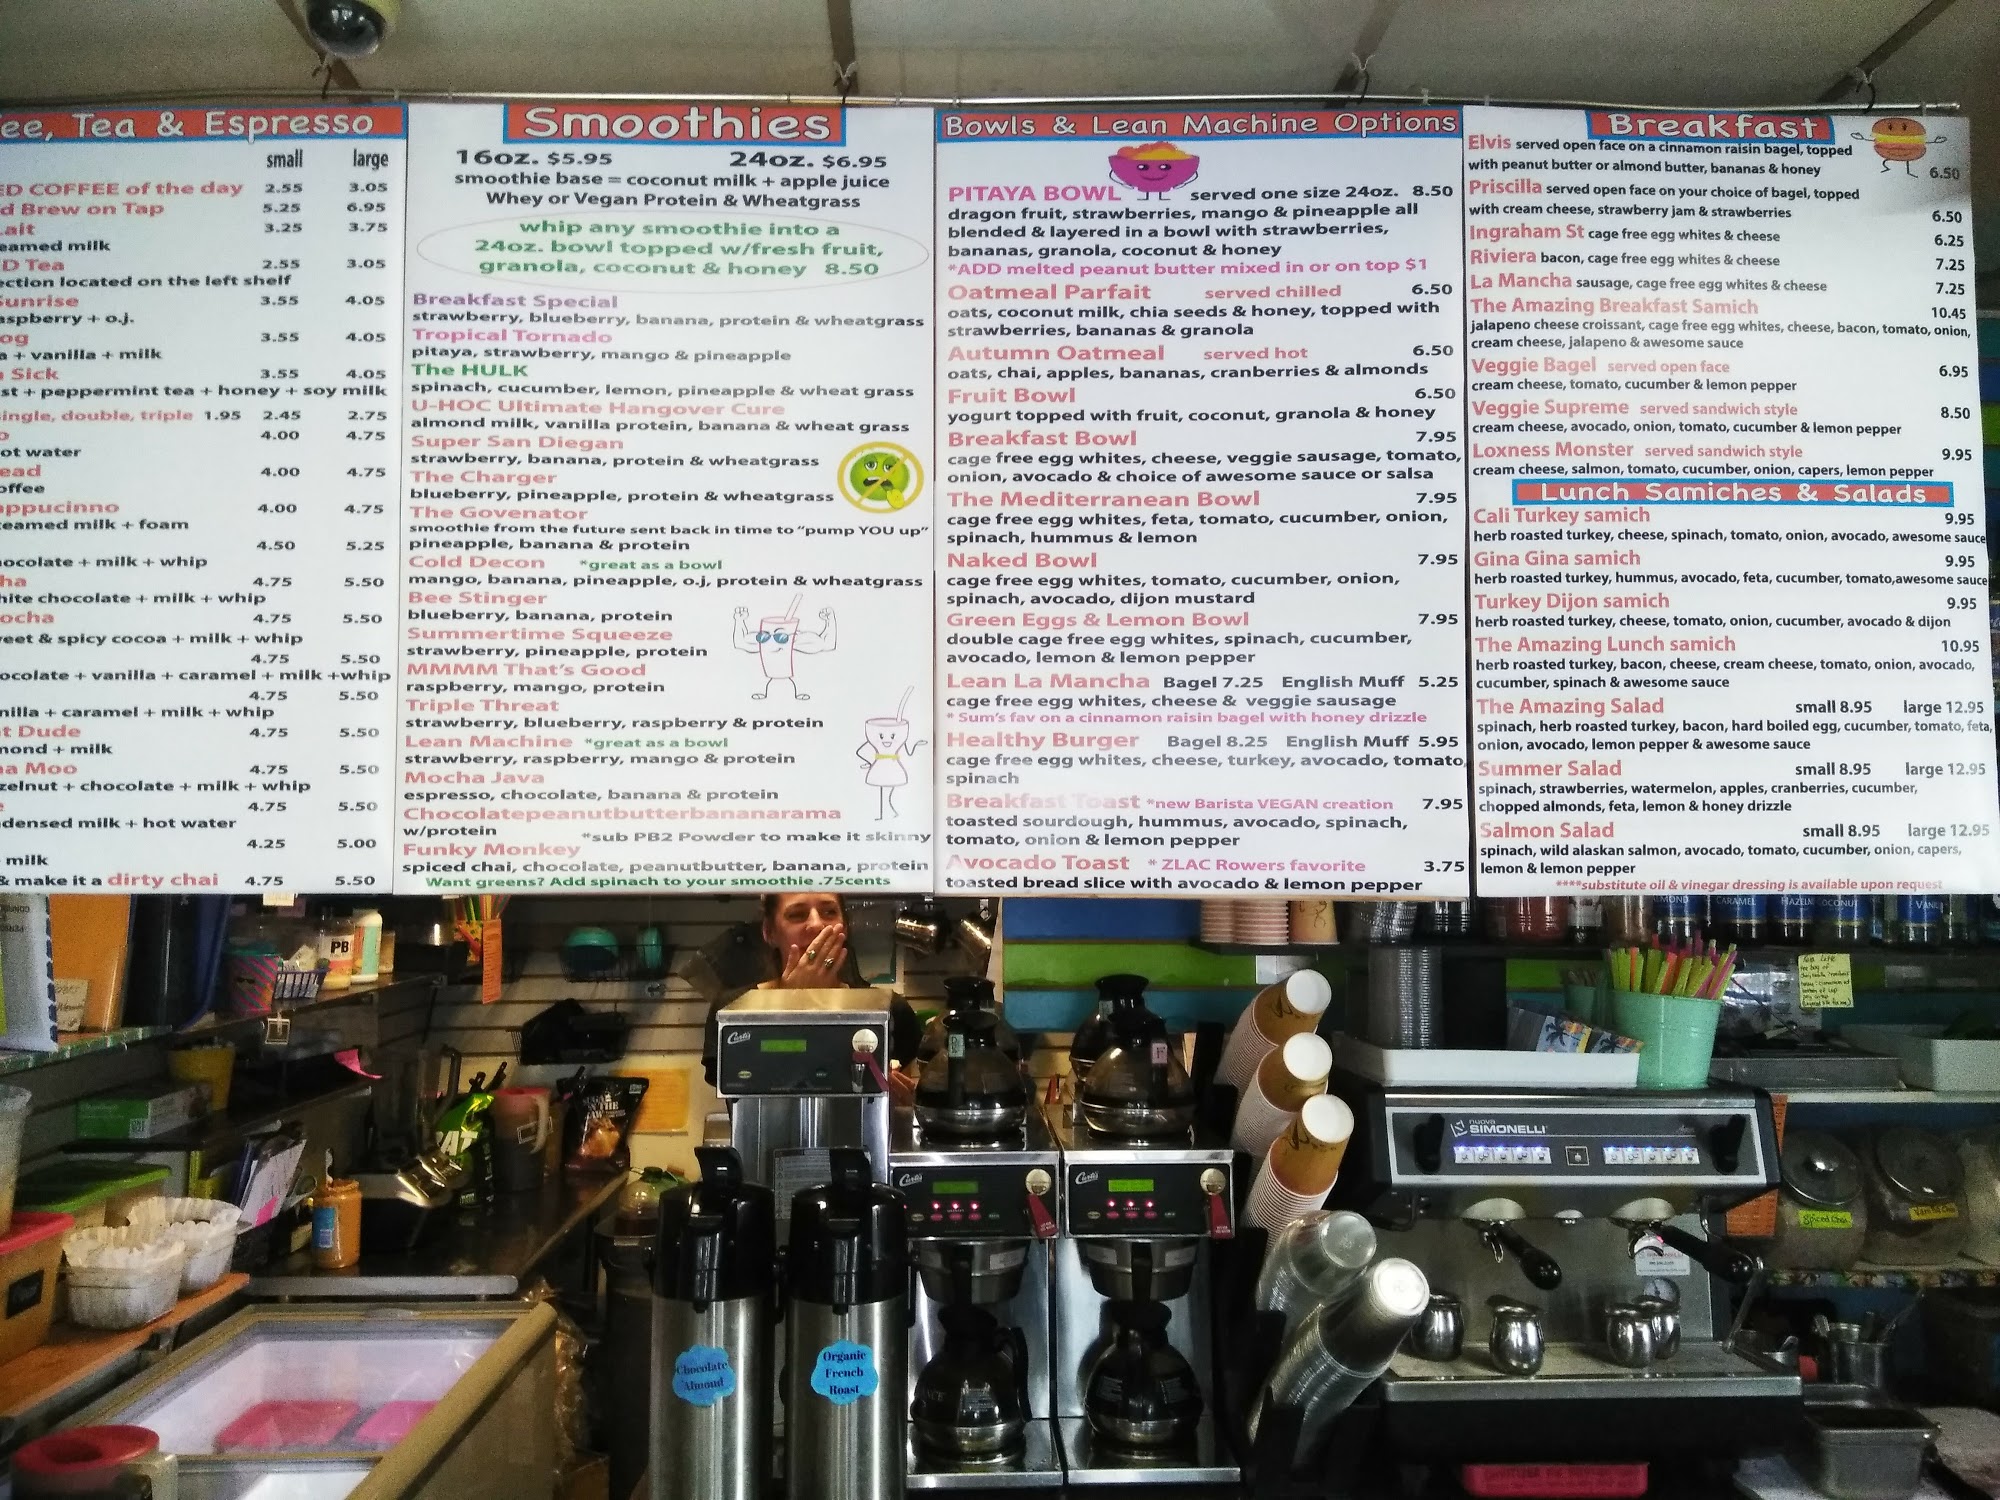 ee, Tea & Espresso
small large
ED COFFEE of the day 2.55 3.05
d Brew on Tap 5.25 6.95
Lait 3.25 3.75
eamed milk
D Tea 2.55 3.05
ection located on the left shelf
Sunrise 3.55 4.05
aspberry + o.j.
og 3.55 4.05
a + vanilla + milk
Sick 3.55 4.05
st + peppermint tea + honey + soy milk
single, double, triple 1.95 2.45 2.75
o 4.00 4.75
ot water
ead 4.00 4.75
offee
appucinno 4.00 4.75
teamed milk + foam
4.50 5.25
hocolate + milk + whip
ha 4.75 5.50
hite chocolate + milk + whip
ocha 4.75 5.50
weet & spicy cocoa + milk + whip
4.75 5.50
ocolate + vanilla + caramel + milk +whip
4.75 5.50
nilla + caramel + milk + whip
t Dude 4.75 5.50
mond + milk
na Moo 4.75 5.50
zelnut + chocolate + milk + whip
e 4.75 5.50
ndensed milk + hot water
4.25 5.00
milk
& make it a dirty chai 4.75 5.50
Smoothies
16oz. $5.95 24oz. $6.95
smoothie base = coconut milk + apple juice
Whey or Vegan Protein & Wheatgrass
whip any smoothie into a
24oz. bowl topped w/fresh fruit,
granola, coconut & honey 8.50
Breakfast Special
strawberry, blueberry, banana, protein & wheatgrass
Tropical Tornado
pitaya, strawberry, mango & pineapple
The HULK
spinach, cucumber, lemon, pineapple & wheat grass
U-HOC Ultimate Hangover Cure
almond milk, vanilla protein, banana & wheat grass
Super San Diegan
strawberry, banana, protein & wheatgrass
The Charger
blueberry, pineapple, protein & wheatgrass
The Govenator
smoothie from the future sent back in time to "pump YOU up"
pineapple, banana & protein
Cold Decon *great as a bowl
mango, banana, pineapple, o.j, protein & wheatgrass
Bee Stinger
blueberry, banana, protein
Summertime Squeeze
strawberry, pineapple, protein
MMMM That's Good
raspberry, mango, protein
Triple Threat
strawberry, blueberry, raspberry & protein
Lean Machine *great as a bowl
strawberry, raspberry, mango & protein
Mocha Java
espresso, chocolate, banana & protein
Chocolatepeanutbutterbananarama
w/protein *sub PB2 Powder to make it skinny
Funky Monkey
spiced chai, chocolate, peanutbutter, banana, protein
Want greens? Add spinach to your smoothie .75cents
Bowls & Lean Machine Options
PITAYA BOWL served one size 24oz. 8.50
dragon fruit, strawberries, mango & pineapple all
blended & layered in a bowl with strawberries,
bananas, granola, coconut & honey
*ADD melted peanut butter mixed in or on top $1
Oatmeal Parfait served chilled 6.50
oats, coconut milk, chia seeds & honey, topped with
strawberries, bananas & granola
Autumn Oatmeal served hot 6.50
oats, chai, apples, bananas, cranberries & almonds
Fruit Bowl 6.50
yogurt topped with fruit, coconut, granola & honey
Breakfast Bowl 7.95
cage free egg whites, cheese, veggie sausage, tomato,
onion, avocado & choice of awesome sauce or salsa
The Mediterranean Bowl 7.95
cage free egg whites, feta, tomato, cucumber, onion,
spinach, hummus & lemon
Naked Bowl 7.95
cage free egg whites, tomato, cucumber, onion,
spinach, avocado, dijon mustard
Green Eggs & Lemon Bowl 7.95
double cage free egg whites, spinach, cucumber,
avocado, lemon & lemon pepper
Lean La Mancha Bagel 7.25 English Muff 5.25
cage free egg whites, cheese & veggie sausage
* Sum's fav on a cinnamon raisin bagel with honey drizzle
Healthy Burger Bagel 8.25 English Muff 5.95
cage free egg whites, cheese, turkey, avocado, tomato,
spinach
Breakfast Toast *new Barista VEGAN creation 7.95
toasted sourdough, hummus, avocado, spinach,
tomato, onion & lemon pepper
Avocado Toast * ZLAC Rowers favorite 3.75
toasted bread slice with avocado & lemon pepper
Breakfast
Elvis served open face on a cinnamon raisin bagel, topped
with peanut butter or almond butter, bananas & honey 6.50
Priscilla served open face on your choice of bagel, topped
with cream cheese, strawberry jam & strawberries 6.50
Ingraham St cage free egg whites & cheese 6.25
Riviera bacon, cage free egg whites & cheese 7.25
La Mancha sausage, cage free egg whites & cheese 7.25
The Amazing Breakfast Samich 10.45
jalapeno cheese croissant, cage free egg whites, cheese, bacon, tomato, onion,
cream cheese, jalapeno & awesome sauce
Veggie Bagel served open face 6.95
cream cheese, tomato, cucumber & lemon pepper
Veggie Supreme served sandwich style 8.50
cream cheese, avocado, onion, tomato, cucumber & lemon pepper
Loxness Monster served sandwich style 9.95
cream cheese, salmon, tomato, cucumber, onion, capers, lemon pepper
Lunch Samiches & Salads
Cali Turkey samich 9.95
herb roasted turkey, cheese, spinach, tomato, onion, avocado, awesome sauce
Gina Gina samich 9.95
herb roasted turkey, hummus, avocado, feta, cucumber, tomato,awesome sauce
Turkey Dijon samich 9.95
herb roasted turkey, cheese, tomato, onion, cucumber, avocado & dijon
The Amazing Lunch samich 10.95
herb roasted turkey, bacon, cheese, cream cheese, tomato, onion, avocado,
cucumber, spinach & awesome sauce
The Amazing Salad small 8.95 large 12.95
spinach, herb roasted turkey, bacon, hard boiled egg, cucumber, tomato, feta,
onion, avocado, lemon pepper & awesome sauce
Summer Salad small 8.95 large 12.95
spinach, strawberries, watermelon, apples, cranberries, cucumber,
chopped almonds, feta, lemon & honey drizzle
Salmon Salad small 8.95 large 12.95
spinach, wild alaskan salmon, avocado, tomato, cucumber, onion, capers,
lemon & lemon pepper
****substitute oil & vinegar dressing is available upon request
PB
CARAMEL
COCONUT
Curtis
Curtis
Curtis
nuova
SIMONELLI
Spiced Chai
Chocolate
Almond
Organic
French
Roast